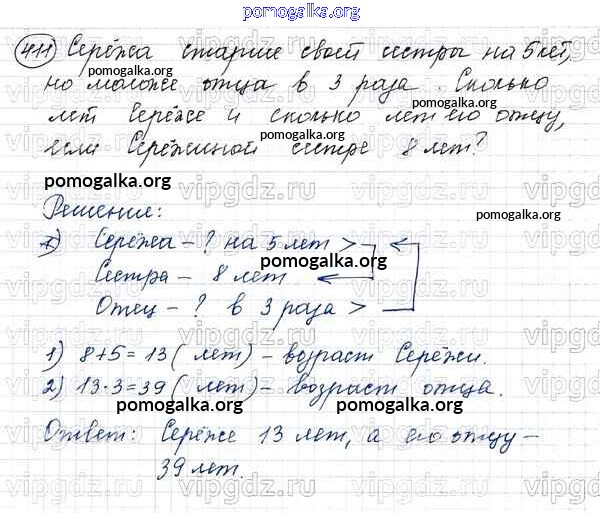 pomogalka.org
411 Серёжа старше своей сестры на 5 лет,
pomogalka.org
но моложе отца в 3 раза. Сколько
pomogalka.org
лет Серёже и сколько лет его отцу,
pomogalka.org
если Серёжиной сестре 8 лет?
pomogalka.org
vipgdz.ru vipgdz.ru vipgdz.ru
Решение:
pomogalka.org
Серёжа - ? на 5 лет >
pomogalka.org
Сестра - 8 лет
Отец - ? в 3 раза >
pomogalka.org
1) 8+5=13 (лет) - возраст Серёжи.
2) 13·3=39 (лет) - возраст отца.
pomogalka.org pomogalka.org
Ответ: Серёже 13 лет, а его отцу -
39 лет.
pomogalka.org
vipgdz.ru vipgdz.ru vipgdz.ru